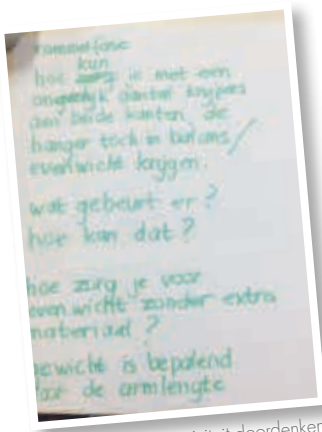 hoe kun je met een
ongelijk aantal knijpers
aan beide kanten de
hanger toch in balans/
evenwicht krijgen.
wat gebeurt er?
hoe kan dat?
hoe zorg je voor
evenwicht zonder extra
materiaal?
gewicht is bepalend
de armlengte
doordenken